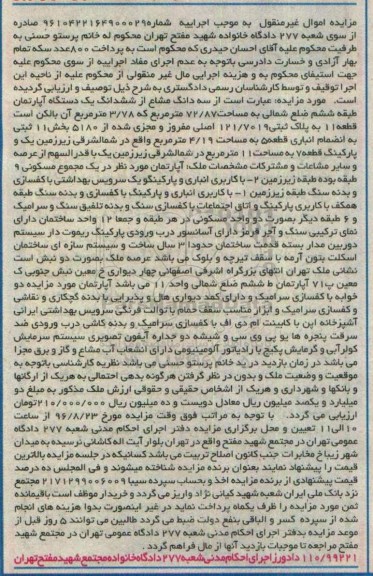 مزایده اموال غیرمنقول به موجب اجراییه شماره ۹۶۱۰۴۲۲۱۶۴۹۰۰۰۲۹ صادره
از سوی شعبه ۲۷۷ دادگاه خانواده شهید مفتح تهران محکوم له خانم پرستو حسنی به
طرفیت محکوم علیه آقای احسان حیدری که محکوم است به پرداخت ۸۰۰عدد سکه تمام
بهار آزادی و خسارت دادرسی باتوجه به عدم اجرای مفاد اجراییه از سوی محکوم علیه
جهت استیفای محکوم به و هزینه اجرایی مال غیر منقولی از محکوم علیه از ناحیه این
اجرا توقیف و توسط کارشناسان رسمی دادگستری به شرح ذیل توصیف و ارزیابی گردیده
است. مورد مزایده: عبارت است از سه دانگ مشاع از ششدانگ یک دستگاه آپارتمان
طبقه ششم ضلع شمالی به مساحت۷۲/۸۷مترمربع که ۳/۷۸ مترمربع آن بالکن است
قطعه۱۱ به پلاک ثبتی۱۲۱/۷۰۱۹ اصلی مفروز و مجزی شده از ۵۱۸۰ بخش۱۱ ثبتی
به انضمام انباری قطعه۵ به مساحت ۴/۱۹ مترمربع واقع در شمالشرقی زیرزمین یک و
پارکینگ قطعه۷ به مساحت۱۱ مترمربع در شمالشرقی زیرزمین یک با قدرالسهم از عرصه
و سایر مشاعات و مشترکات مشخصات ملک: آپارتمان مورد نظر در یک مجموع مسکونی ۹
طبقه بوده طبقه زیرزمین ۲- با کاربری انباری و پارکینگو یک سرویس بهداشتی با کفسازی
و بدنه سنگ طبقه زیرزمین ۱- با کاربری انباری و پارکینگ با کفسازی و بدنه سنگ طبقه
همکف با کاربری پارکینگ و اتاق اجتماعات با کفسازی سنگ و بدنه تلفیق سنگ و سرامیک
و ۶ طبقه دیگر بصورت دو واحد مسکونی در هر طبقه و جمعا ۱۲ واحد ساختمان دارای
نمای ترکیبی سنگ و آجر قرمز دارای آسانسور درب ورودی پارکینگ ریموت دار سیستم
دوربین مدار بسته قدمت ساختمان حدودا ۳ سال ساخت و سیستم سازه ای ساختمان
اسکلت بتون آرمه با سقف تیرچه و بلوک می باشد عرصه ملک بصورت دو نبش است
نشانی ملک تهران انتهای بزرگراه اشرفی اصفهانی چهار دیواری خ معین نبش جنوبی ک
معین پ۷۱ آپارتمان ط ششم ضلع شمالی واحد ۱۱ می باشد آپارتمان مورد مزایده دو
خوابه با کفسازی سرامیک و دارای کمد دیواری هال و پذیرایی با بدنه گچکاری و نقاشی
و کفسازی سرامیک و ابزار مناسب سقف حمام با توالت فرنگی سرویس بهداشتی ایرانی
آشپزخانه اپن با کابینت ام دی اف با کفسازی سرامیک و بدنه کاشی درب ورودی ضد
سرقت پنجره ها یو پی وی سی و شیشه دو جداره آیفون تصویری سیستم سرمایش
کولرآبی و گرمایش پکیج با رادیاتور آلومینیومی دارای انشعاب آب مشاع و گاز و برق مجزا
می باشد در زمان بازدید در ید خانم پرستو حسنی می باشد نظریه کارشناسی باتوجه به
موقعیت و وضعیت ملک و بدون در نظر گرفتن هرگونه بدهی احتمالی به هریک از ارگانها
و بانکها و شهرداری و هریک از اشخاص حقیقی و حقوقی ارزش ملک مذکور به مبلغ دو
میلیارد و یکصد میلیون ریال معادل دویست و ده میلیون ریال ۲۱۰/۰۰۰/۰۰۰تومان
ارزیابی می گردد. با توجه به مراتب فوق وقت مزایده مورخ ۹۶/۸/۲۳ از ساعت
۱۰الی۱۱ تعیین و محل برگزاری مزایده دفتر اجرای احکام مدنی شعبه ۲۷۷ دادگاه
عمومی تهران در مجتمع شهید مفتح واقع در تهران بلوار آیت اله کاشانی نرسیده به میدان
شهر زیبا خ مخابرات جنب کانون اصلاح تربیت می باشد کسانیکه در جلسه مزایده بالاترین
قیمت را پیشنهاد نمایند بعنوان برنده مزایده شناخته میشوند و فی المجلس ده درصد
قیمت پیشنهادی از برنده مزایده اخذ و بحساب سپرده سیبا۲۱۷۱۲۹۹۰۰۶۰۰۹ مجتمع
نزد بانک ملی ایران شعبه شهید کیانی نژاد واریز می گردد و خریدار موظف است باقیمانده
ثمن مورد مزایده را ظرف یکماه پرداخت نماید در غیر اینصورت بدوا هزینه های انجام
شده از سپرده کسر و الباقی بنفع دولت ضبط می گردد طالبین می توانند ۵ روز قبل از
موعد مزایده بدفتر اجرای احکام مدنی شعبه ۲۷۷ دادگاه عمومی تهران در مجتمع شهید
مفتح مراجعه تا موجبات بازدید آنها از مال فراهم گردد.
۱۱۰/۹۹۲۲۱ دادورز اجرای احکام مدنی شعبه ۲۷۷ دادگاه خانواده مجتمع شهید مفتح تهران